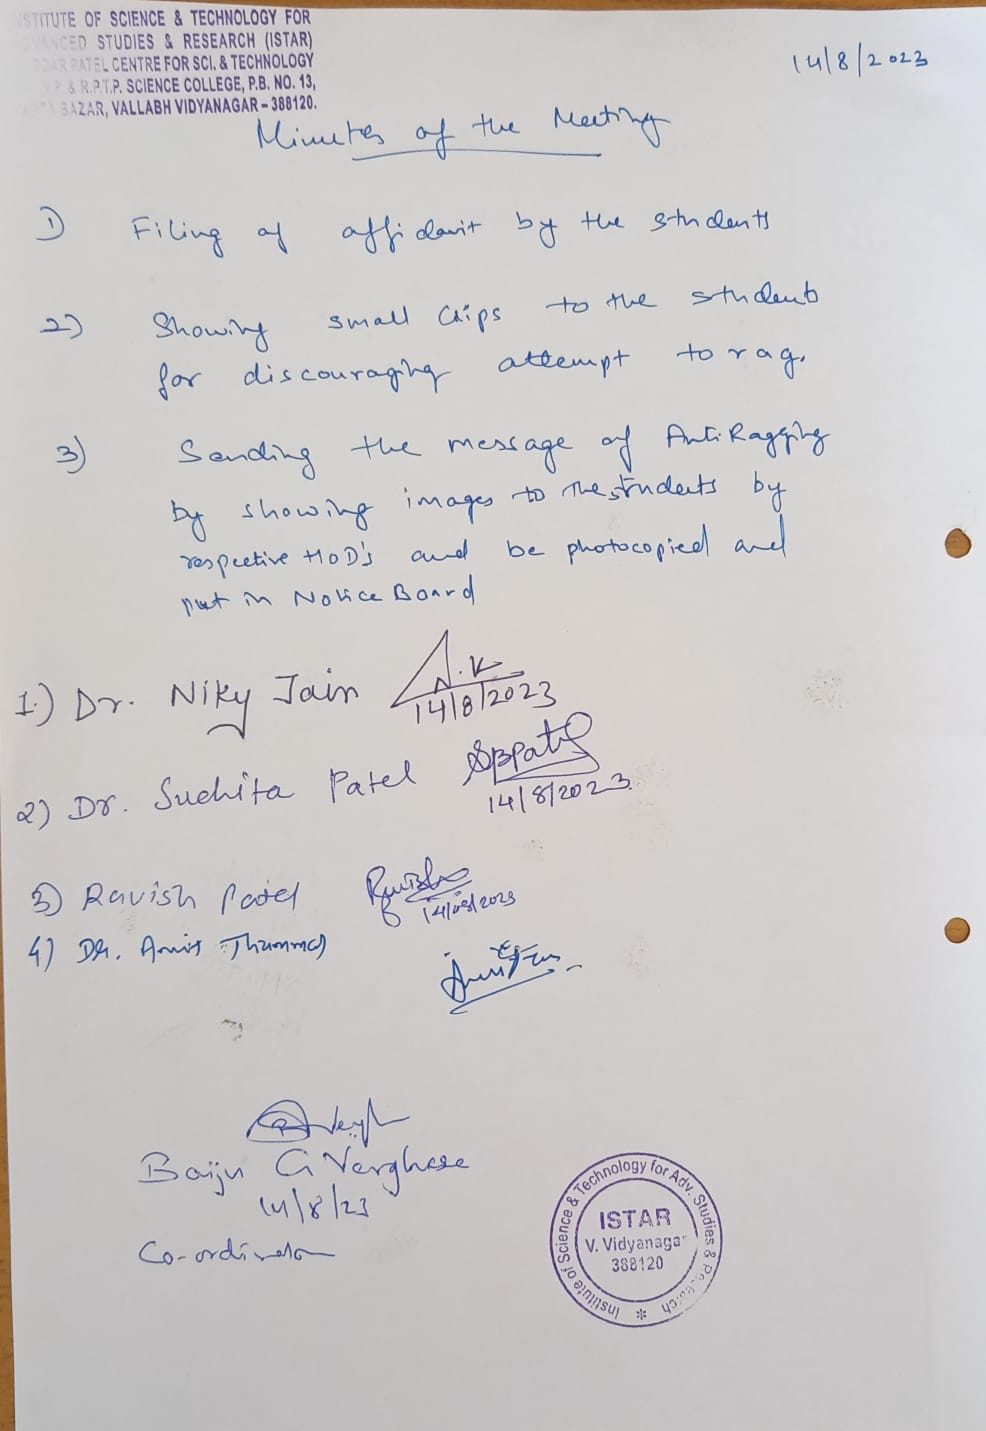 INSTITUTE OF SCIENCE & TECHNOLOGY FOR
ADVANCED STUDIES & RESEARCH (ISTAR)
PATEL CENTRE FOR SCI. & TECHNOLOGY
& R.P.T.P. SCIENCE COLLEGE, P.B. NO. 13,
BAZAR, VALLABH VIDYANAGAR - 388120.
14/8/2023
Minutes of the Meeting
1) Filing of affidavit by the students
2) Showing small clips to the students
for discouraging attempt to rag.
3) Sending the message of Anti Ragging
by showing images to the students by
respective HOD's and be photocopied and
put in Notice Board
1.) Dr. Niky Jain
14/8/2023
2) Dr. Suchita Patel SBPatel
14/8/2023
3) Ravish Patel Ravish
14/08/2023
4) Dr. Amit Thummar
Baiju G Verghese
14/8/23
Co-ordinator
Institute of Science & Technology for Adv. Studies & Research
ISTAR
V. Vidyanagar
388120